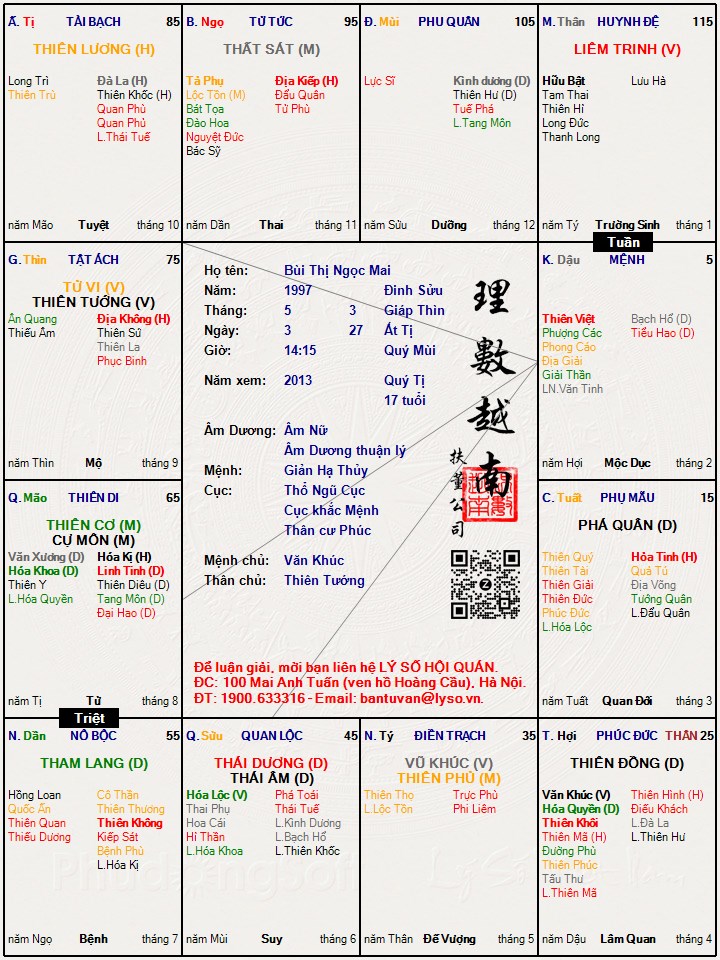 Ấ. Tị TÀI BẠCH 85
THIÊN LƯƠNG (H)
Long Trì
Thiên Trù
Đà La (H)
Thiên Khốc (H)
Quan Phù
Quan Phủ
L.Thái Tuế
năm Mão Tuyệt tháng 10
B. Ngọ TỬ TỨC 95
THẤT SÁT (M)
Tả Phụ
Lộc Tồn (M)
Bát Tọa
Đào Hoa
Nguyệt Đức
Bác Sỹ
Địa Kiếp (H)
Đẩu Quân
Tử Phù
năm Dần Thai tháng 11
Đ. Mùi PHU QUÂN 105
Lực Sĩ
Kình dương (D)
Thiên Hư (D)
Tuế Phá
L.Tang Môn
năm Sửu Dưỡng tháng 12
M. Thân HUYNH ĐỆ 115
LIÊM TRINH (V)
Hữu Bật
Tam Thai
Thiên Hỉ
Long Đức
Thanh Long
Lưu Hà
năm Tý Trường Sinh tháng 1
Tuần
G. Thìn TẬT ÁCH 75
TỬ VI (V)
THIÊN TƯỚNG (V)
Ân Quang
Thiếu Âm
Địa Không (H)
Thiên Sứ
Thiên La
Phục Binh
năm Thìn Mộ tháng 9
Họ tên: Bùi Thị Ngọc Mai
Năm: 1997 Đinh Sửu
Tháng: 5 3 Giáp Thìn
Ngày: 3 27 Ất Tị
Giờ: 14:15 Quý Mùi
Năm xem: 2013 Quý Tị
17 tuổi
Âm Dương: Âm Nữ
Âm Dương thuận lý
Mệnh: Giản Hạ Thủy
Cục: Thổ Ngũ Cục
Cục khắc Mệnh
Thân cư Phúc
Mệnh chủ: Văn Khúc
Thân chủ: Thiên Tướng
理數越南
扶董公司
Z
Để luận giải, mời bạn liên hệ LÝ SỐ HỘI QUÁN.
ĐC: 100 Mai Anh Tuấn (ven hồ Hoàng Cầu), Hà Nội.
ĐT: 1900.633316 - Email: bantuvan@lyso.vn.
K. Dậu MỆNH 5
Thiên Việt
Phượng Các
Phong Cáo
Địa Giải
Giải Thần
LN.Văn Tinh
Bạch Hổ (D)
Tiểu Hao (D)
năm Hợi Mộc Dục tháng 2
Q. Mão THIÊN DI 65
THIÊN CƠ (M)
CỰ MÔN (M)
Văn Xương (D)
Hóa Khoa (D)
Thiên Y
L.Hóa Quyền
Hóa Kị (H)
Linh Tinh (D)
Thiên Diêu (D)
Tang Môn (D)
Đại Hao (D)
năm Tị Tử tháng 8
Triệt
C. Tuất PHỤ MẪU 15
PHÁ QUÂN (D)
Thiên Quý
Thiên Tài
Thiên Giải
Thiên Đức
Phúc Đức
L.Hóa Lộc
Hỏa Tinh (H)
Quả Tú
Địa Võng
Tướng Quân
L.Đẩu Quân
năm Tuất Quan Đới tháng 3
N. Dần NÔ BỘC 55
THAM LANG (D)
Hồng Loan
Quốc Ấn
Thiên Quan
Thiếu Dương
Cô Thần
Thiên Thương
Thiên Không
Kiếp Sát
Bệnh Phù
L.Hóa Kị
năm Ngọ Bệnh tháng 7
Q. Sửu QUAN LỘC 45
THÁI DƯƠNG (D)
THÁI ÂM (D)
Hóa Lộc (V)
Thai Phụ
Hoa Cái
Hỉ Thần
L.Hóa Khoa
Phá Toái
Thái Tuế
L.Kình Dương
L.Bạch Hổ
L.Thiên Khốc
năm Mùi Suy tháng 6
N. Tý ĐIỀN TRẠCH 35
VŨ KHÚC (V)
THIÊN PHỦ (M)
Thiên Thọ
L.Lộc Tồn
Trực Phù
Phi Liêm
năm Thân Đế Vượng tháng 5
T. Hợi PHÚC ĐỨC THÂN 25
THIÊN ĐỒNG (D)
Văn Khúc (V)
Hóa Quyền (D)
Thiên Khôi
Thiên Mã (H)
Đường Phù
Thiên Phúc
Tấu Thư
L.Thiên Mã
Thiên Hình (H)
Điếu Khách
L.Đà La
L.Thiên Hư
năm Dậu Lâm Quan tháng 4